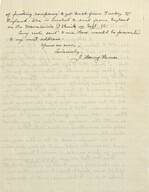 of finding company to get back from Turkey to
England. She is booked to sail from England
on the Mauretania I think on Sept. 16.
Any mail sent to me here would be forwarded
to my next address.
Yours as ever,
Sincerely,
J. Henry